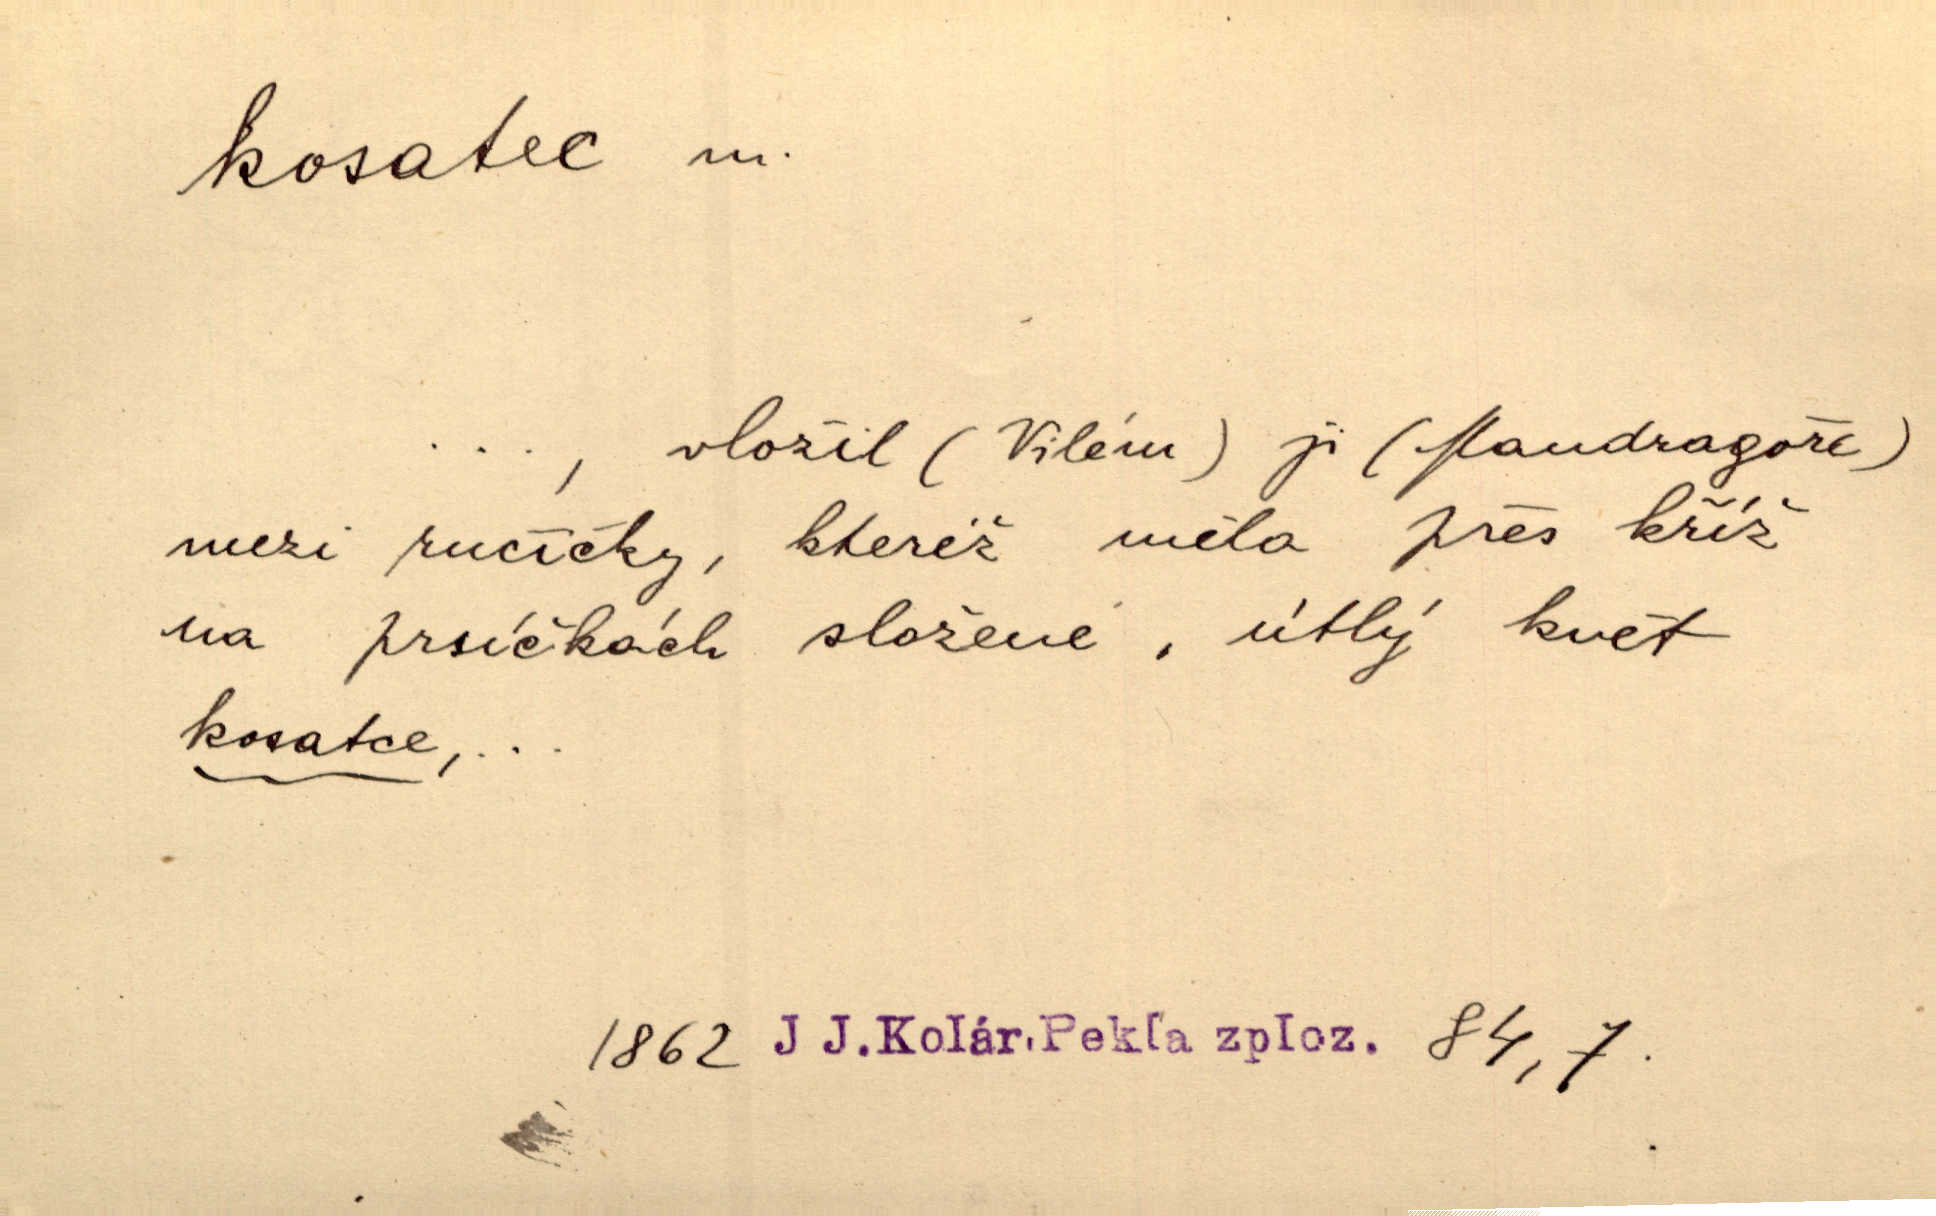 kosatec m.
..., vložil (Vilém) jí (Mandragoře)
mezi ručičky, kteréž měla přes kříž
na prsíčkách složené, útlý květ
kosatce,...
1862 J J.Kolár.Pekla zploz. 84,7.